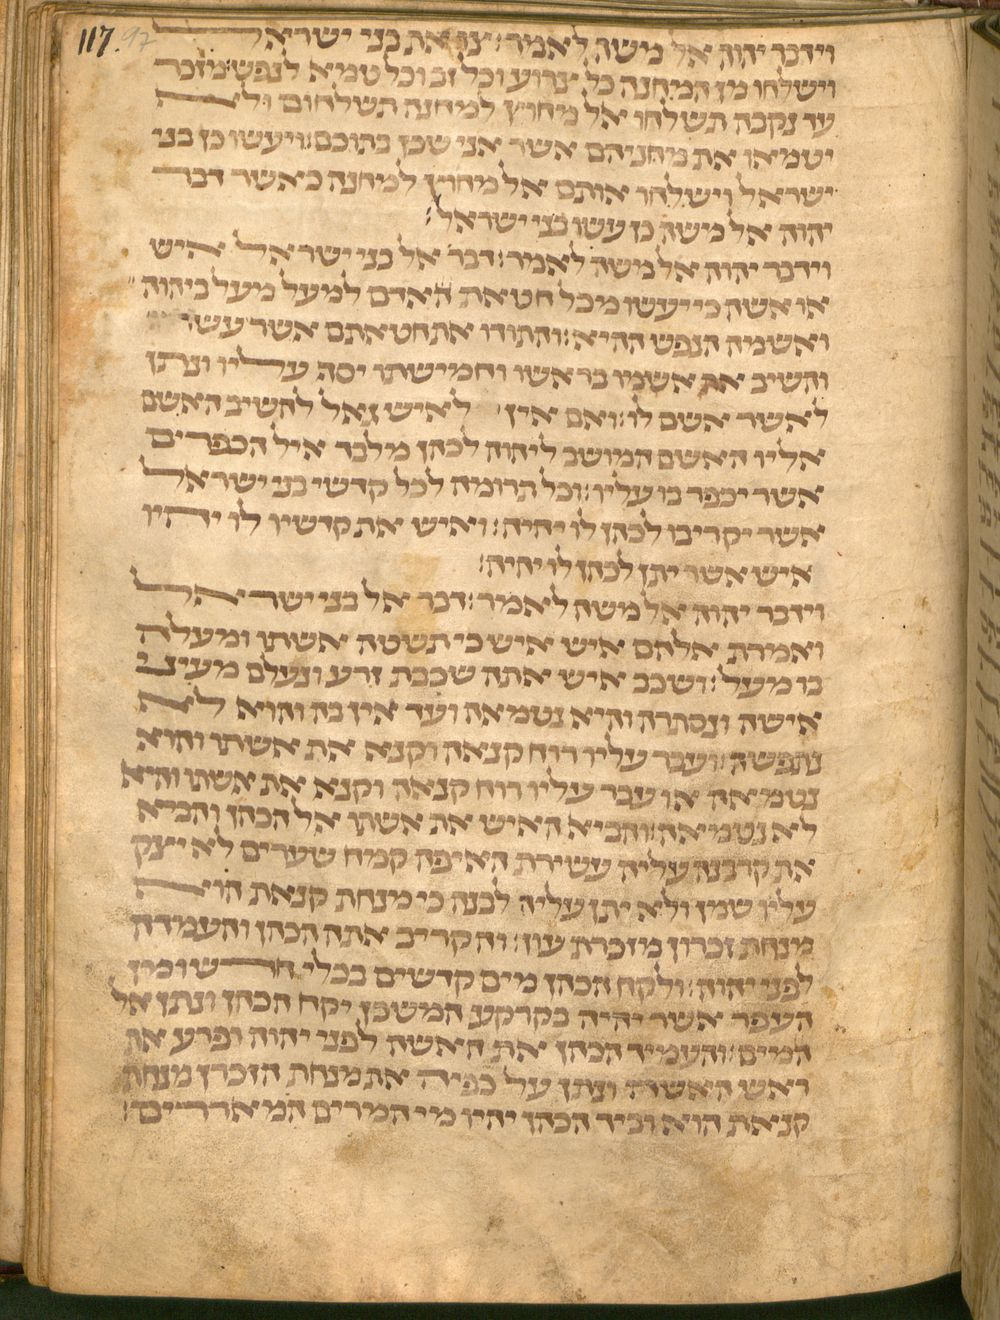 117. 97
וידבר יהוה אל משה לאמר: צו את בני ישראל
וישלחו מן המחנה כל צרוע וכל זב וכל טמא לנפש: מזכר
עד נקבה תשלחו אל מחוץ למחנה תשלחום ולא
יטמאו את מחניהם אשר אני שכן בתוכם: ויעשו כן בני
ישראל וישלחו אותם אל מחוץ למחנה כאשר דבר
יהוה אל משה כן עשו בני ישראל:
וידבר יהוה אל משה לאמר: דבר אל בני ישראל איש
או אשה כי יעשו מכל חטאת האדם למעל מעל ביהוה
ואשמה הנפש ההיא: והתודו את חטאתם אשר עשו
והשיב את אשמו בראשו וחמישתו יסף עליו ונתן
לאשר אשם לו: ואם אין לאיש גאל להשיב האשם
אליו האשם המושב ליהוה לכהן מלבד איל הכפרים
אשר יכפר בו עליו: וכל תרומה לכל קדשי בני ישראל
אשר יקריבו לכהן לו יהיה: ואיש את קדשיו לו יהיו
איש אשר יתן לכהן לו יהיה:
וידבר יהוה אל משה לאמר: דבר אל בני ישראל
ואמרת אלהם איש איש כי תשטה אשתו ומעלה
בו מעל: ושכב איש אתה שכבת זרע ונעלם מעיני
אישה ונסתרה והיא נטמאה ועד אין בה והוא לא
נתפשה: ועבר עליו רוח קנאה וקנא את אשתו והוא
נטמאה או עבר עליו רוח קנאה וקנא את אשתו והיא
לא נטמאה: והביא האיש את אשתו אל הכהן והביא
את קרבנה עליה עשירת האיפה קמח שערים לא יצק
עליו שמן ולא יתן עליה לבנה כי מנחת קנאת הוא
מנחת זכרון מזכרת עון: והקריב אתה הכהן והעמדה
לפני יהוה: ולקח הכהן מים קדשים בכלי חרש ומן
העפר אשר יהיה בקרקע המשכן יקח הכהן ונתן אל
המים: והעמיד הכהן את האשה לפני יהוה ופרע את
ראש האשה ונתן על כפיה את מנחת הזכרון מנחת
קנאת הוא וביד הכהן יהיו מי המרים המאררים: